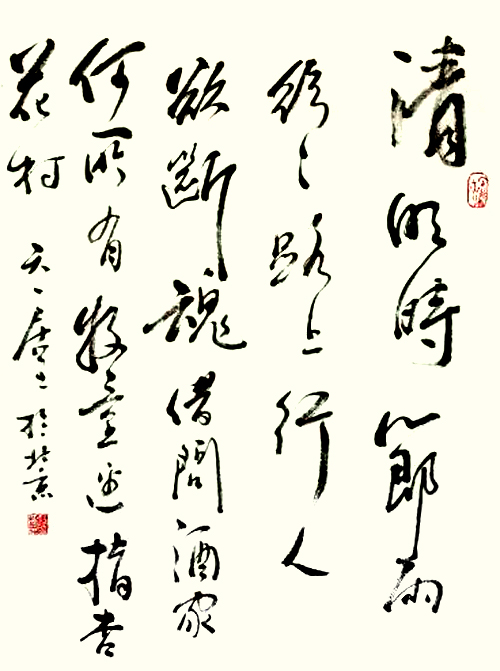 清明時節雨
紛々路上行人
欲斷魂借問酒家
何所有牧童遥指杏
花村
於北京